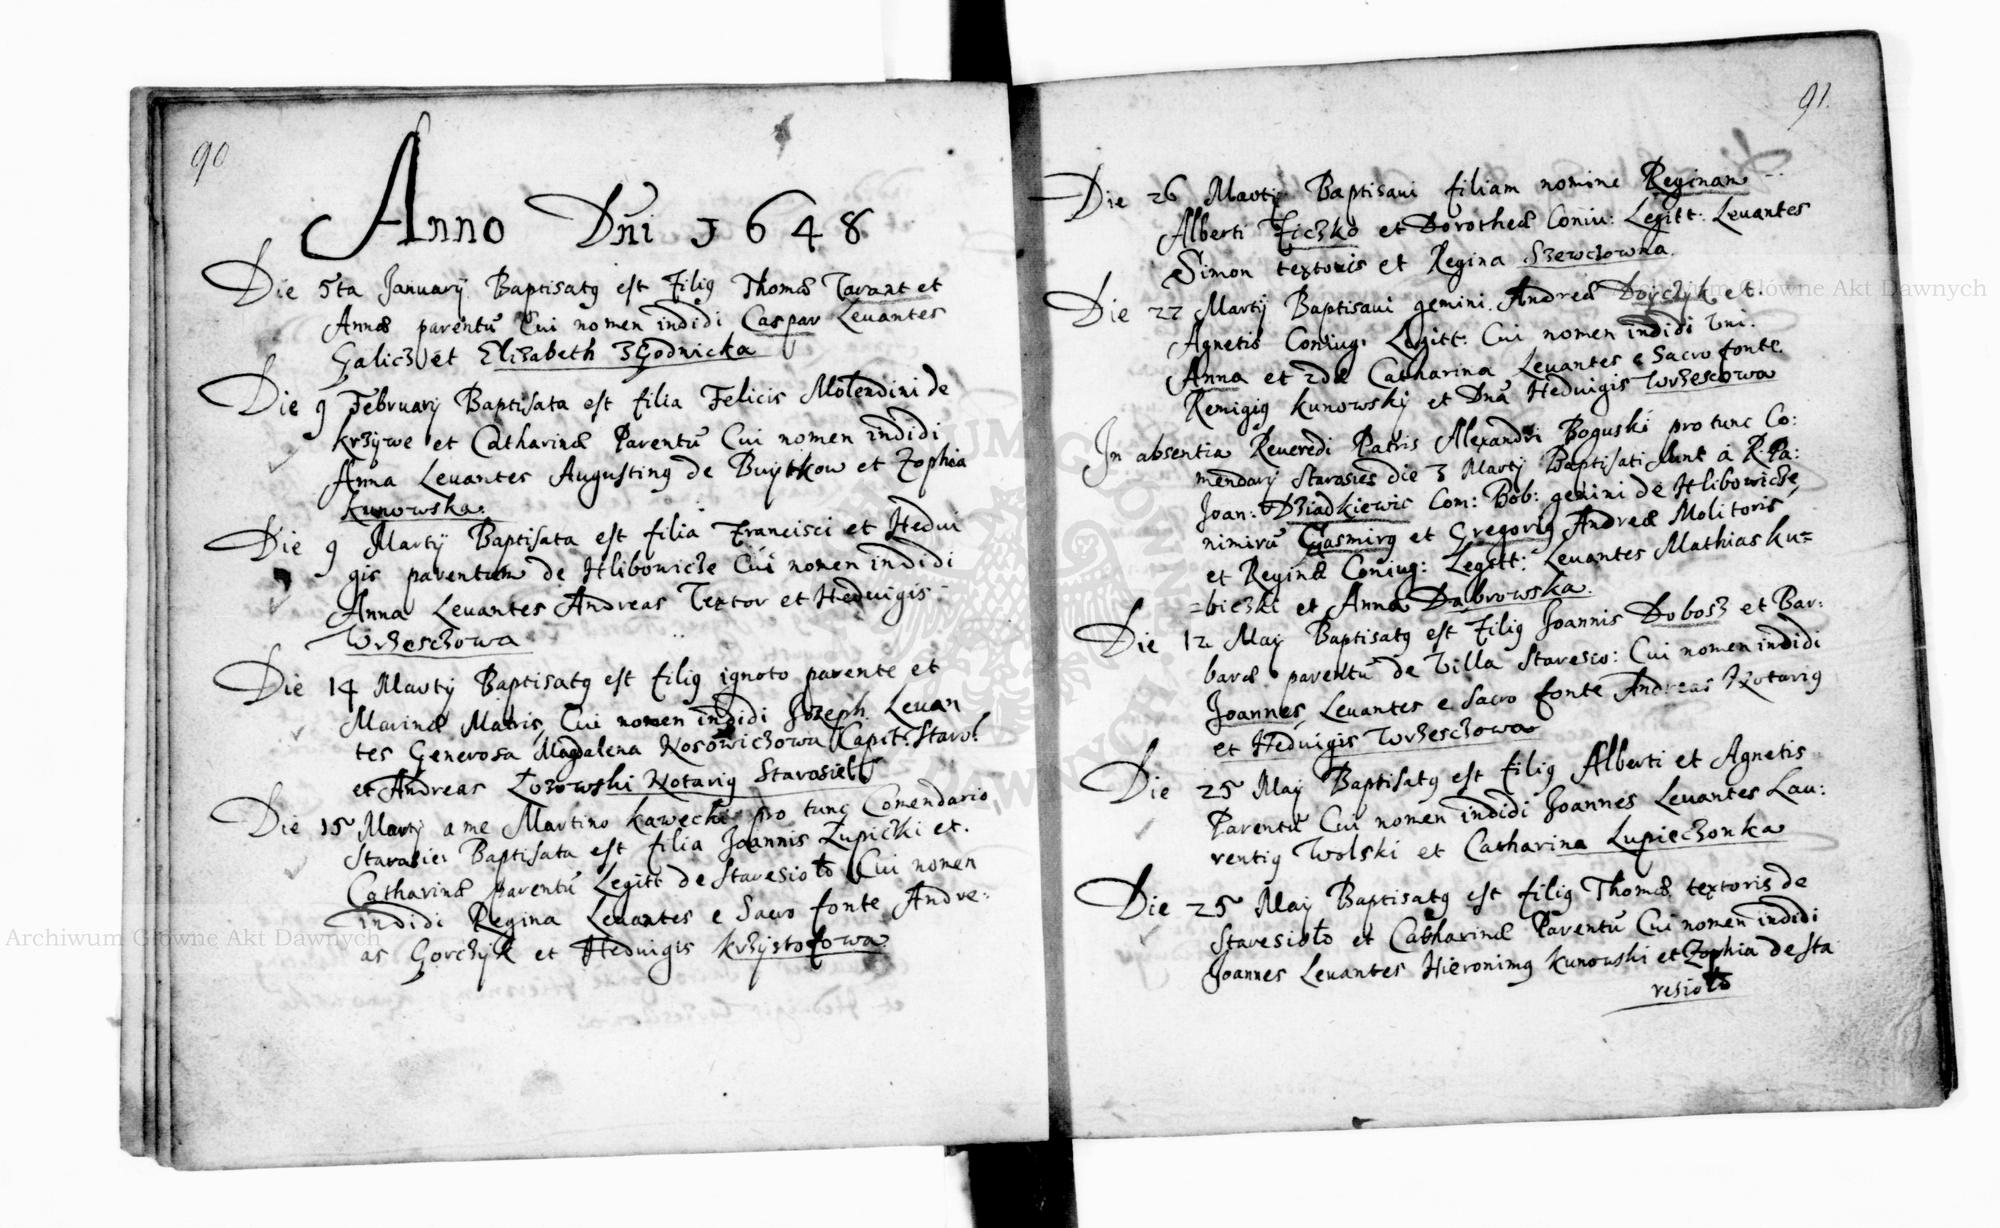 90
Anno Dni 1648
Die 5ta Januarÿ Baptisatꝯ est Filiꝯ Thomæ Tarant et
Annæ parentũ Cui nomen indidi Caspar Leuantes
Galicz et Elizabeth Zgodnicka
Die 9 Februarÿ Baptisata est filia Felicis Molendini de
krzywe et Catharinæ Parentũ Cui nomen indidi
Anna Leuantes Augustinꝯ de Buytkow et Zophia
kunowska.
Die 9 Martÿ Baptisata est filia Francisci et Hedui
gis parentum de Hlibowicze Cui nomen indidi
Anna Leuantes Andreas Textor et Heduigis
Wrzeschowa
Die 14 Martÿ Baptisatꝯ est filiꝯ ignoto parente et
Marinæ Matris, Cui nomen indidi Jozeph. Leuan
tes Generosa Magdalena Kosowichowa Capit: Starol:
et Andreas Łozowski Notariꝯ Starosiel:
Die 15 Martÿ a me Martino kawecki pro tunc Comendario
Starasie: Baptisata est filia Joannis Zupiczki et.
Catharinæ parentũ Legitt de Staresioło Cui nomen
indidi Regina Leuantes e Sacro fonte Andre:
as Gorczyk et Heduigis krzystofowa
91.
Die 26 Martÿ Baptisaui filiam nomine Reginam
Alberti Ficzko et Dorotheæ Coniu: Legitt: Leuantes
Simon textoris et Regina Szewczowna.
Die 22 Martÿ Baptisaui gemini Andreæ Dorczyk et.
Agnetis Coniug: Legitt: Cui nomen indidi Uni.
Anna et 2dæ Catharina Leuantes e Sacro fonte.
Remigiꝯ kunowskÿ et Dnã Heduigis Wrzescowa
In absentia Reueredi Patris Alexandri Boguski pro tunc Co:
mendarÿ Starasies die 3 Martÿ Baptisati sunt á R. Pa:
Joan: Dziadkiewic Com: Bob: gemini de Hlibowicze,
nimirũ Casmirꝯ et Gregoriꝯ Andreæ Molitoris
et Reginæ Coniug: Legitt: Leuantes Mathias ku=
=biczki et Anna Dabrowska.
Die 12 Maÿ Baptisatꝯ est Filiꝯ Joannis Dobosz et Bar:
baræ parentũ de Villa Staresco: Cui nomen indidi
Joannes, Leuantes e Sacro fonte Andreas Notariꝯ
et Heduigis Wrzeschowa
Die 25 Maÿ Baptisatꝯ est filiꝯ Alberti et Agnetis
Parentũ Cui nomen indidi Joannes Leuantes Lau:
rentiꝯ Wolski et Catharina Lupieczonka
Die 25 Maÿ Baptisatꝯ est filiꝯ Thomæ textoris de
Staresioło et Catharinæ Parentũ Cui nomen indidi
Joannes Leuantes Hieronimꝯ kunowski et Zophia de Sta
resioło
Archiwum Główne Akt Dawnych
Archiwum Główne Akt Dawnych